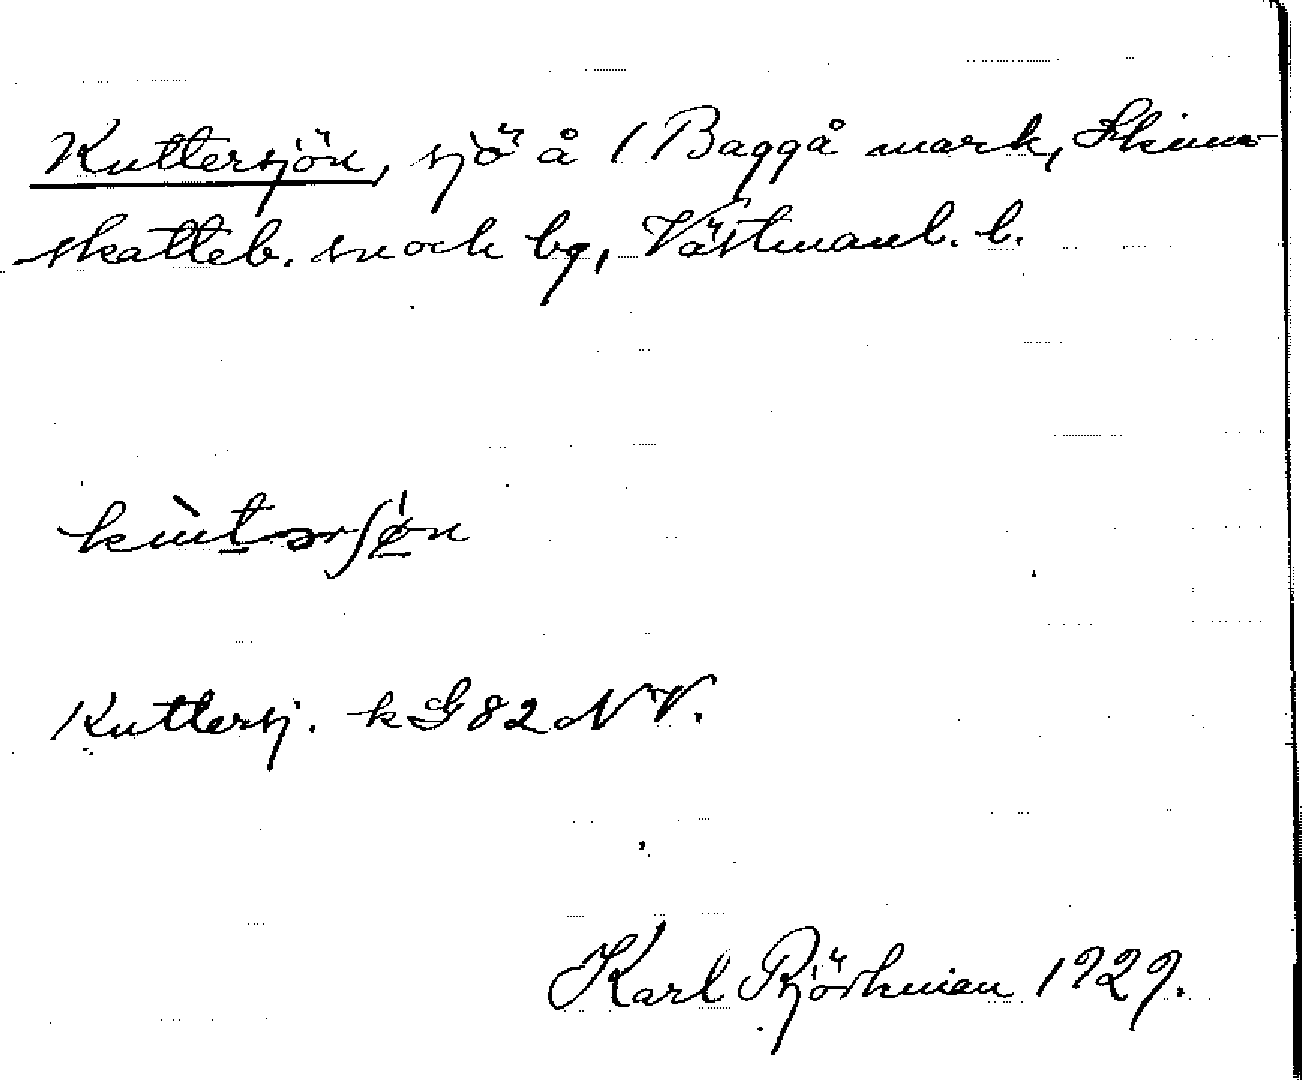 Kuttersjön, sjö å 1 Baggå mark, Skinn-
skatteb. sn och bg, Västmanl. l.
kùt̲ərʃø̲n
Kuttersj. k G 82 NV.
Karl Björkman 1929.